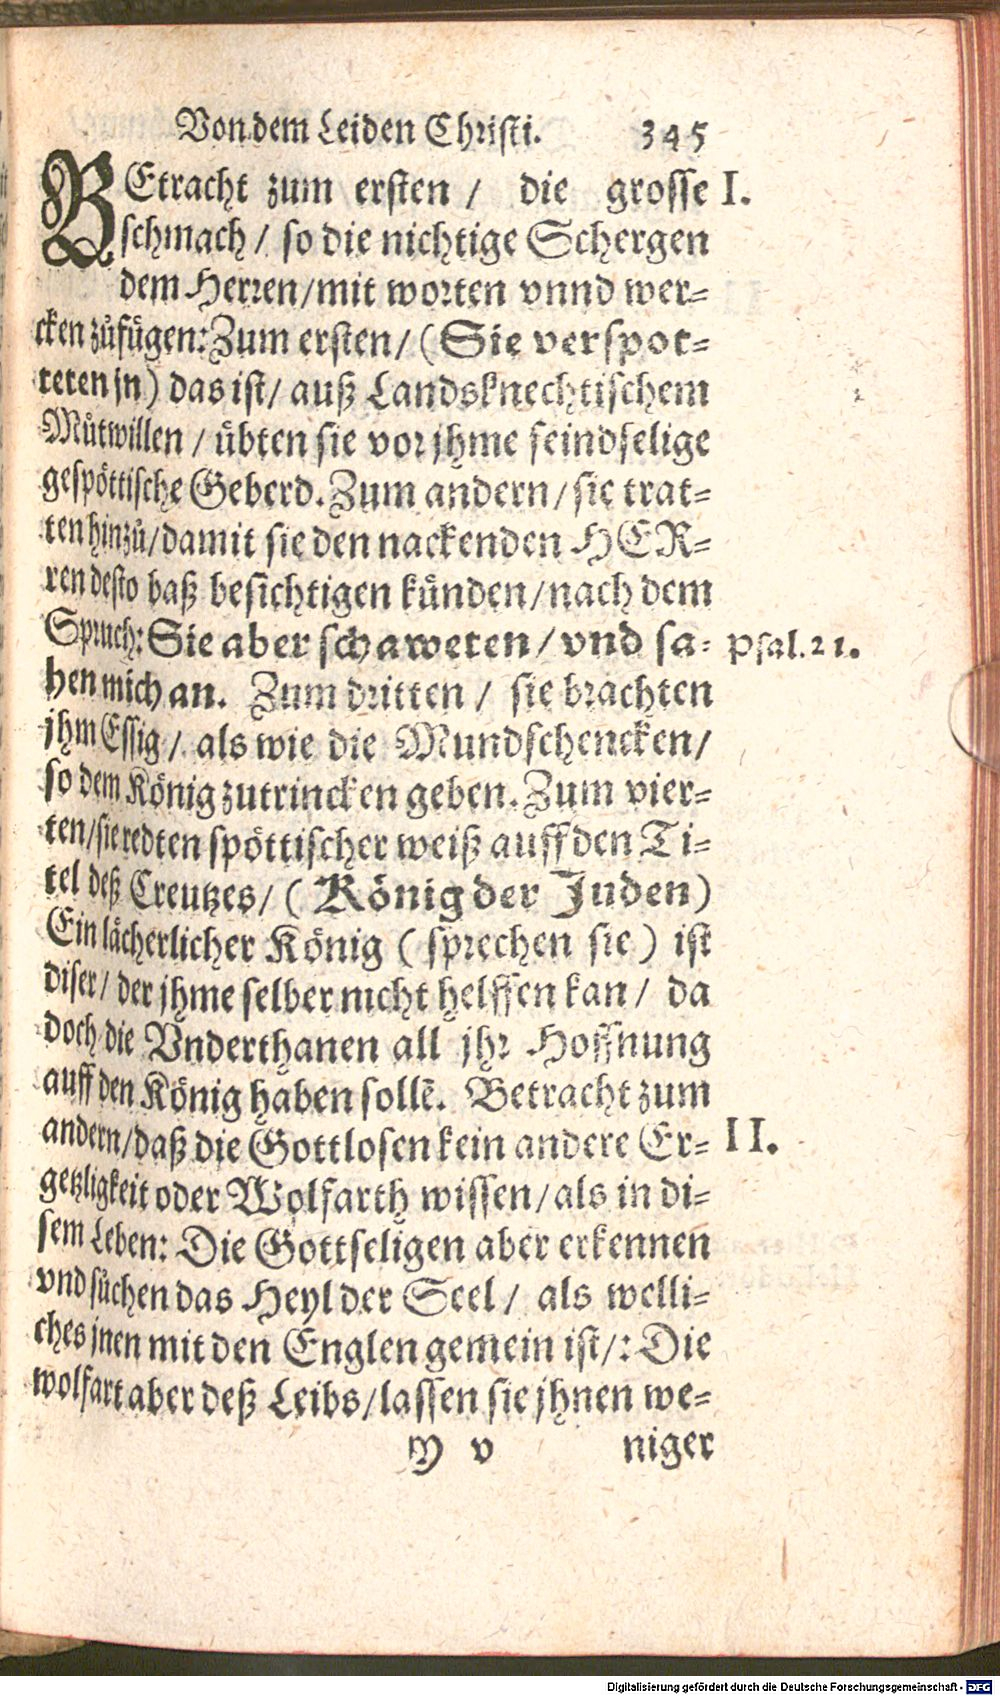 Von dem Leiden Christi. 345
BEtracht zum ersten / die grosse I.
schmach / so die nichtige Schergen
dem Herren/mit worten vnnd wer=
cken zůfügen: Zum ersten/ (Sie verspot=
teten jn) das ist/ auß Landsknechtischem
Můtwillen / übten sie vor jhme feindselige
gespöttische Geberd. Zum andern/ sie trat=
ten hinzů/damit sie den nackenden HER=
ren desto baß besichtigen künden/nach dem
Spruch: Sie aber schaweten/ vnd sa= Psal.21.
hen mich an. Zum dritten / sie brachten
jhm Essig / als wie die Mundschencken/
so dem König zutrincken geben. Zum vier=
ten/sie redten spöttischer weiß auff den Ti=
tel deß Creutzes/ (König der Juden)
Ein lächerlicher König ( sprechen sie ) ist
diser/ der jhme selber nicht helffen kan/ da
doch die Vnderthanen all jhr Hoffnung
auff den König haben sollẽ. Betracht zum
andern/daß die Gottlosen kein andere Er= II.
getzligkeit oder Wolfarth wissen/als in di=
sem Leben: Die Gottseligen aber erkennen
vnd sůchen das Heyl der Seel/ als welli=
ches jnen mit den Englen gemein ist/: Die
wolfart aber deß Leibs/lassen sie jhnen we=
Y v niger
Digitalisierung gefördert durch die Deutsche Forschungsgemeinschaft - DFG